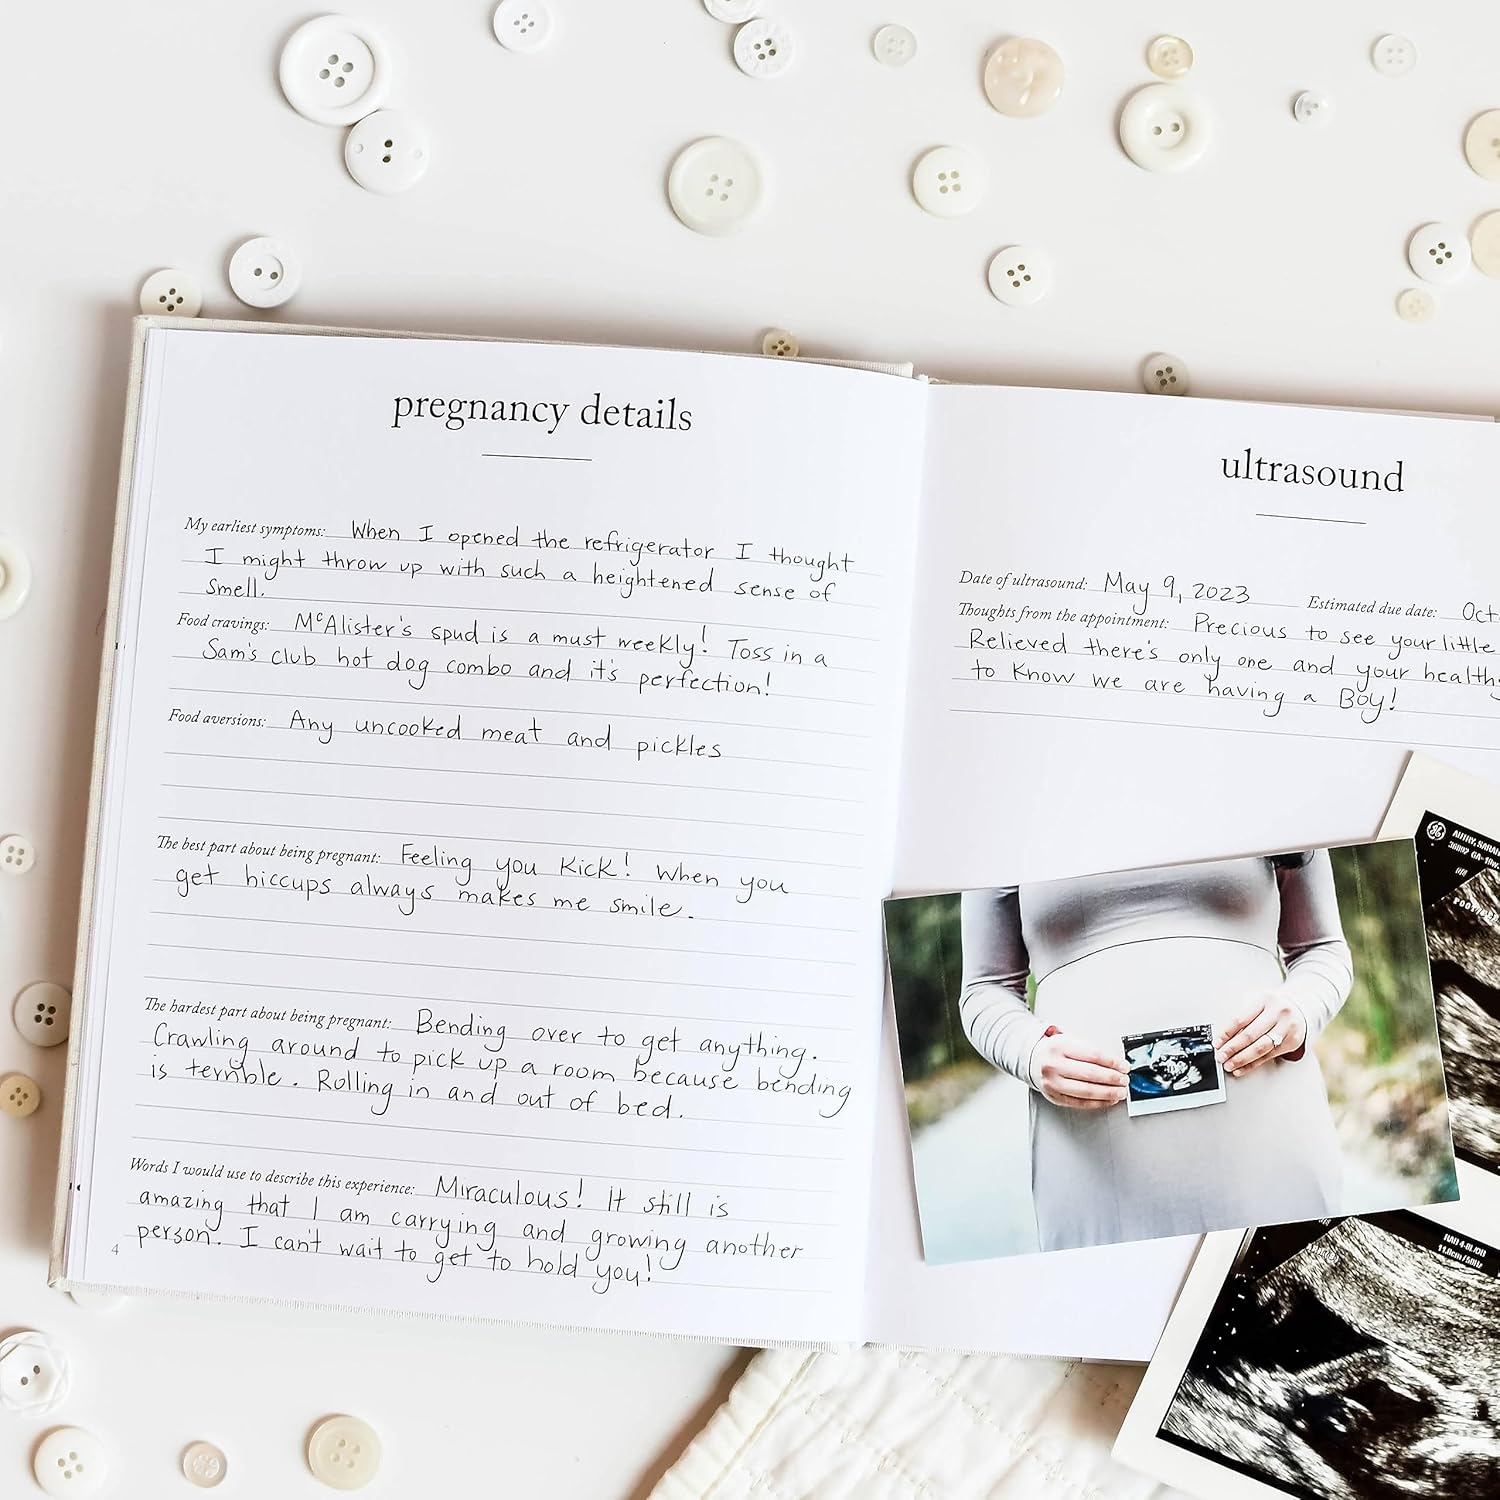 pregnancy details
My earliest symptoms: When I opened the refrigerator I thought
I might throw up with such a heightened sense of
smell.
Food cravings: McAlister's spud is a must weekly! Toss in a
Sam's club hot dog combo and it's perfection!
Food aversions: Any uncooked meat and pickles
The best part about being pregnant: Feeling you kick! When you
get hiccups always makes me smile.
The hardest part about being pregnant: Bending over to get anything.
Crawling around to pick up a room because bending
is terrible. Rolling in and out of bed.
Words I would use to describe this experience: Miraculous! It still is
amazing that I am carrying and growing another
person. I can't wait to get to hold you!
4
ultrasound
Date of ultrasound: May 9, 2023 Estimated due date: Oct
Thoughts from the appointment: Precious to see your little
Relieved there's only one and your health
to know we are having a Boy!
GE
RAB4-8L/OB
11.0cm/50Hz